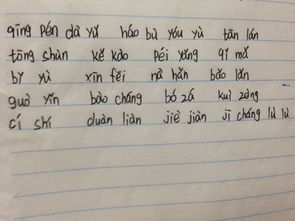 qīng pén dà yǔ háo bù yóu yù tān lán
tōng shùn kě kào péi yǎng qí mǎ
bǐ yù xīn fēi nà hǎn bǎo lǎn
guò yǐn bǎo cháng bó zá kuì zèng
cí shí duàn liàn jiè jiàn jī cháng lù lù